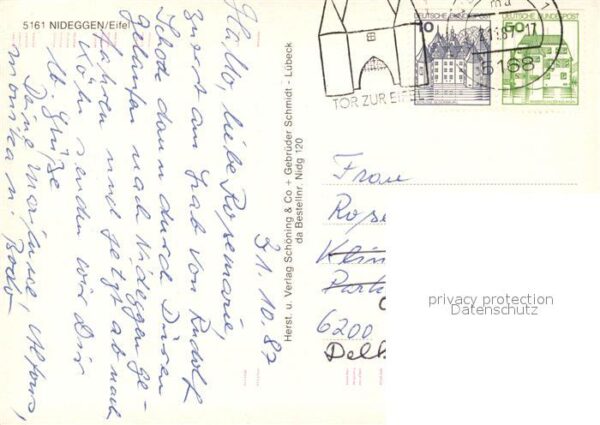 5161 NIDEGGEN/Eifel
31.10.87
Hallo, liebe Rosemarie,
zuerst am Grab von Rudolf
Schott dann durch Düren
gelaufen nach Nideggen ge-
fahren und jetzt ab nach
Köln senden wir Dir
lb. Grüße
Deine Marianne, Alfons,
Monika u. Bodo
Herst. u. Verlag Schöning & Co + Gebrüder Schmidt - Lübeck
da Bestellnr. Nidg 120
TOR ZUR EIFEL
DEUTSCHE BUNDESPOST
10
DEUTSCHE BUNDESPOST
50
5168
Frau
Rose
Klin
Park
6200
Delk
privacy protection
Datenschutz